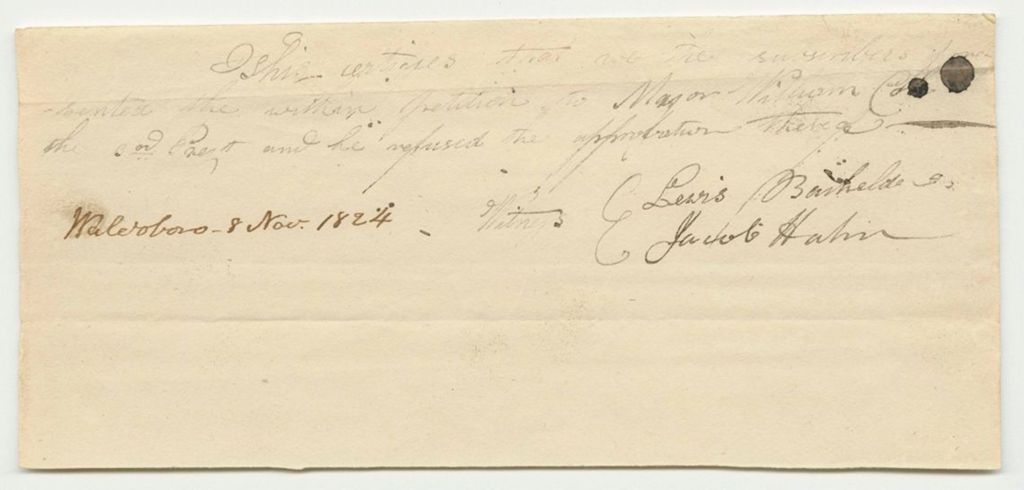 This certifies that we the subscribers pre
sented the within petition to Major William
the and he refused the approbation thereof
Waldoboro - 8 Nov. 1824 Witness Lewis
Jacob Hahn